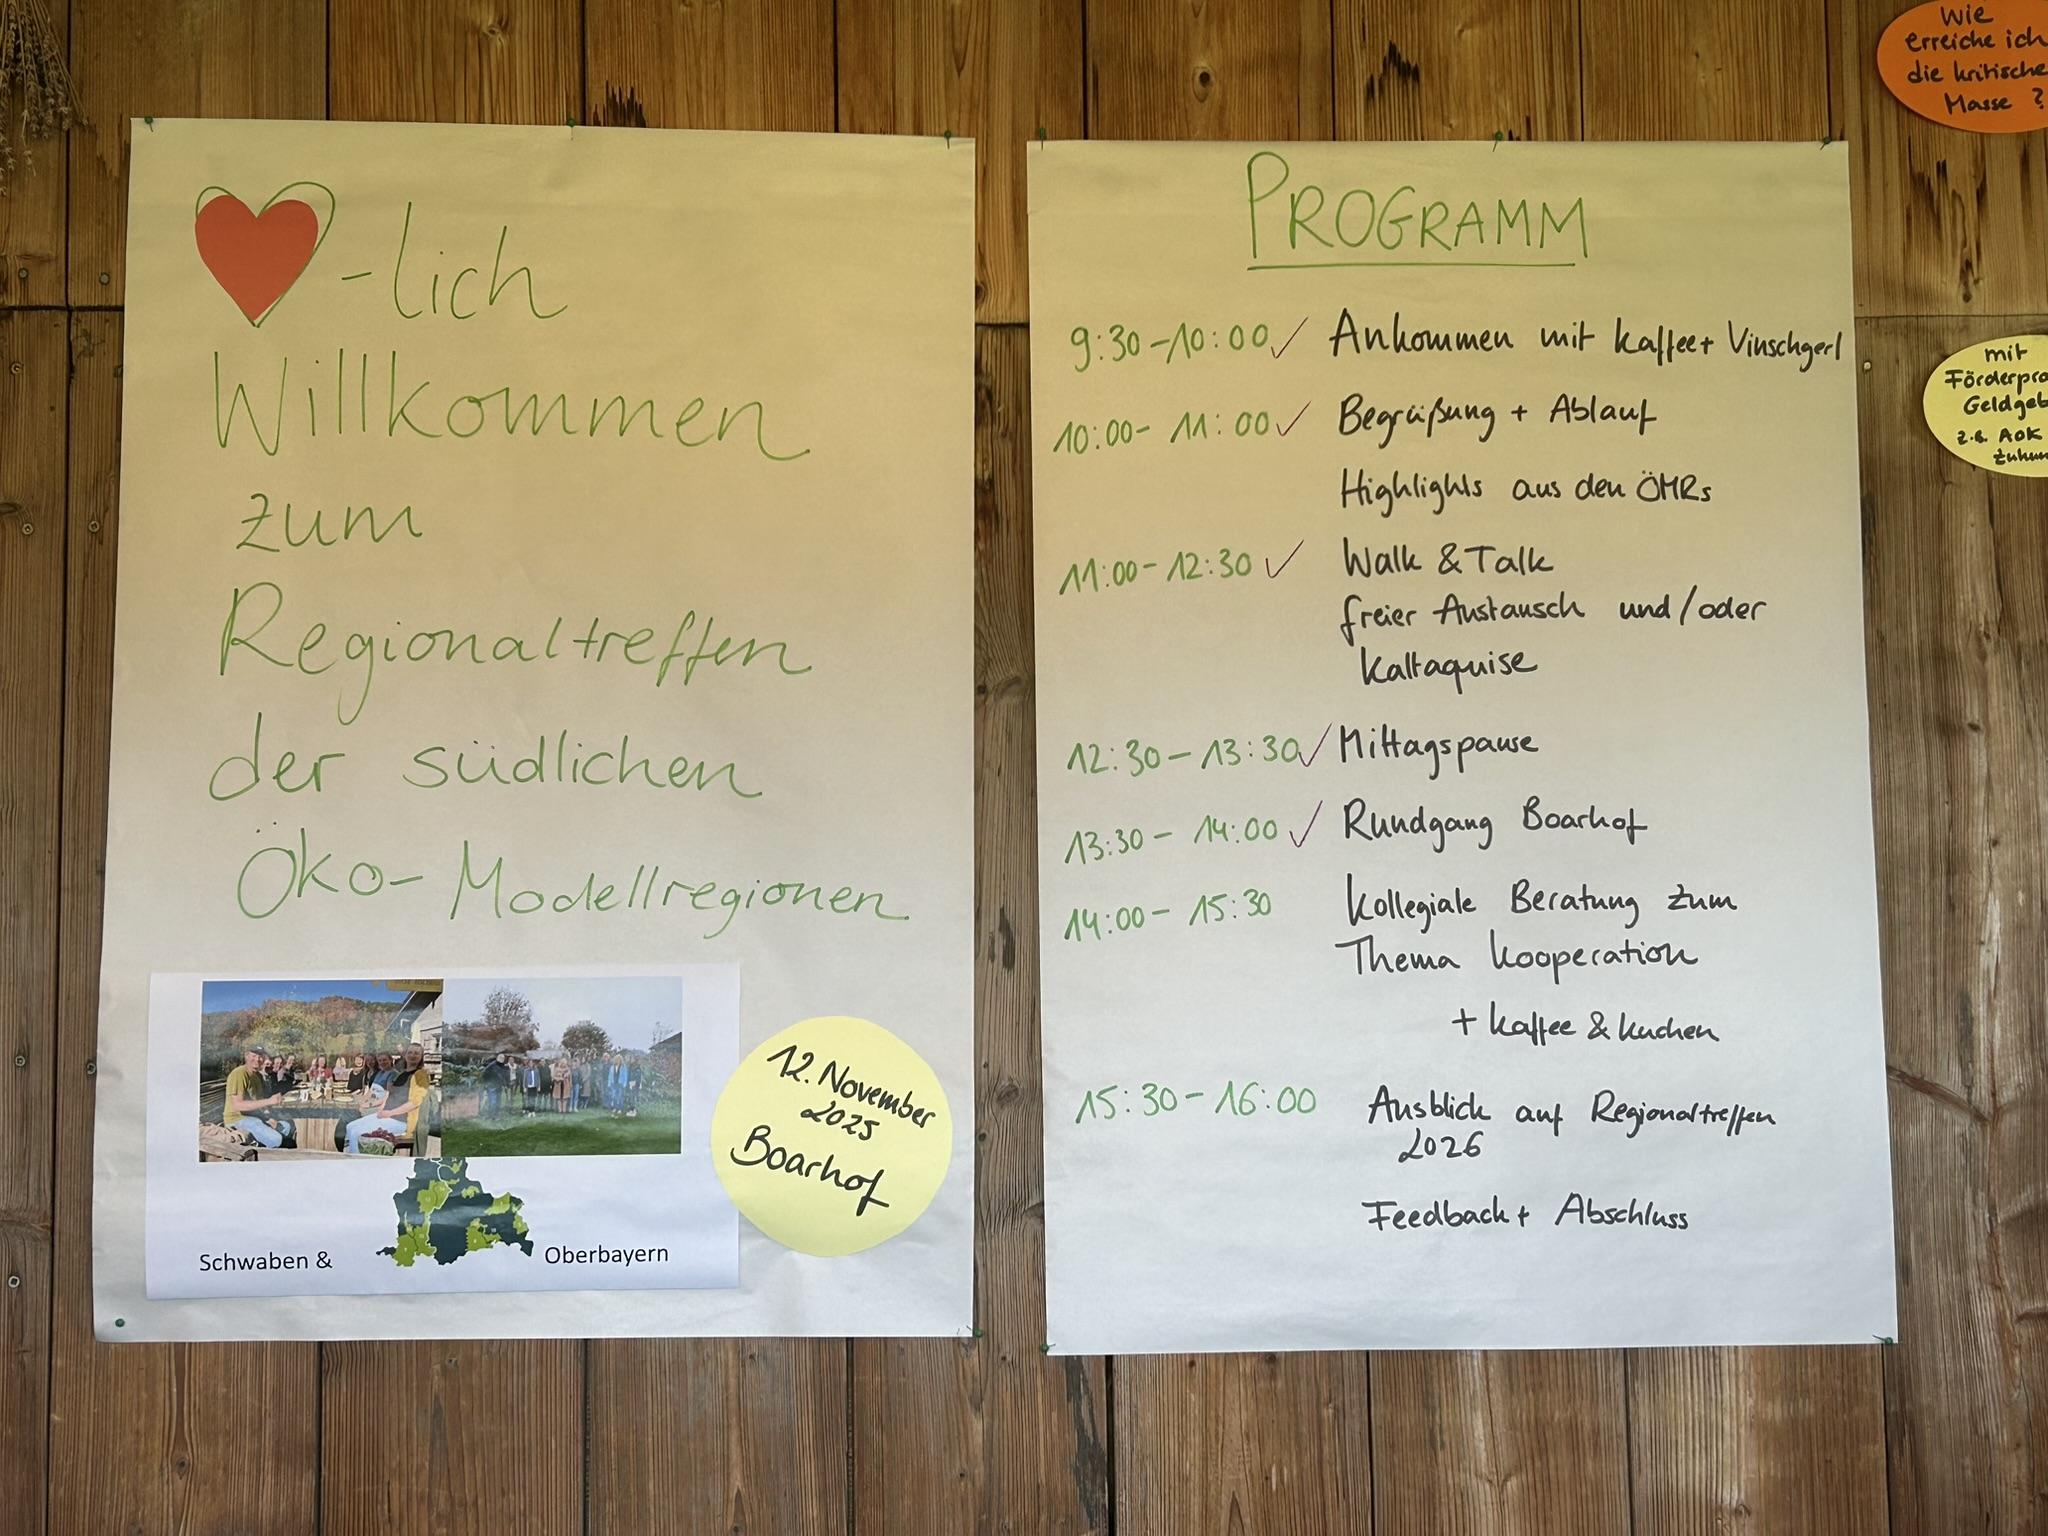 -lich
Willkommen
zum
Regionaltreffen
der südlichen
Öko-Modellregionen
Schwaben &
Oberbayern
12. November
2025
Boarhof
PROGRAMM
9:30-10:00 ✓ Ankommen mit Kaffee + Vinschgerl
10:00-11:00 ✓ Begrüßung + Ablauf
Highlights aus den ÖMRs
11:00-12:30 ✓ Walk & Talk
freier Austausch und/oder
Kaltaquise
12:30-13:30 ✓ Mittagspause
13:30-14:00 ✓ Rundgang Boarhof
14:00-15:30 Kollegiale Beratung zum
Thema Kooperation
+ Kaffee & Kuchen
15:30-16:00 Ausblick auf Regionaltreffen
2026
Feedback + Abschluss
Wie
erreiche ich
die kritische
Masse ?
mit
Förderpro
Geldgeb
z.B. AOK